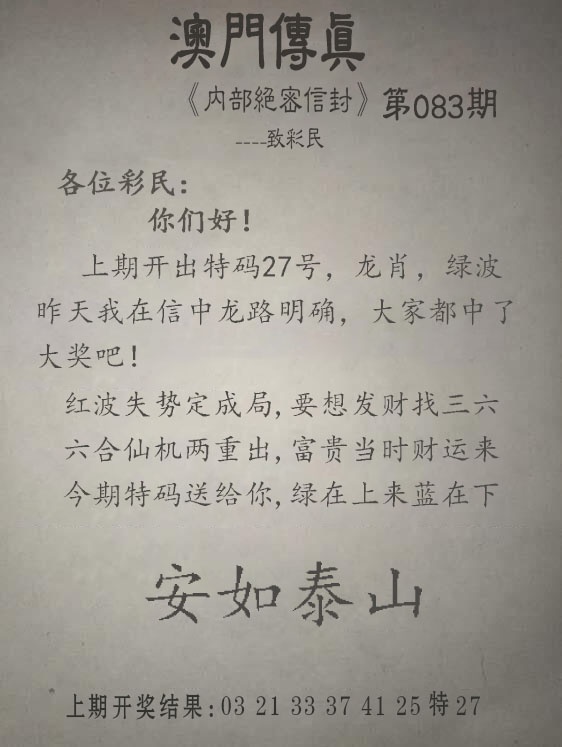 澳門傳眞
《内部絕密信封》第083期
----致彩民
各位彩民：
你们好！
上期开出特码27号，龙肖，绿波
昨天我在信中龙路明确，大家都中了
大奖吧！
红波失势定成局,要想发财找三六
六合仙机两重出,富贵当时财运来
今期特码送给你,绿在上来蓝在下
安如泰山
上期开奖结果:03 21 33 37 41 25 特 27